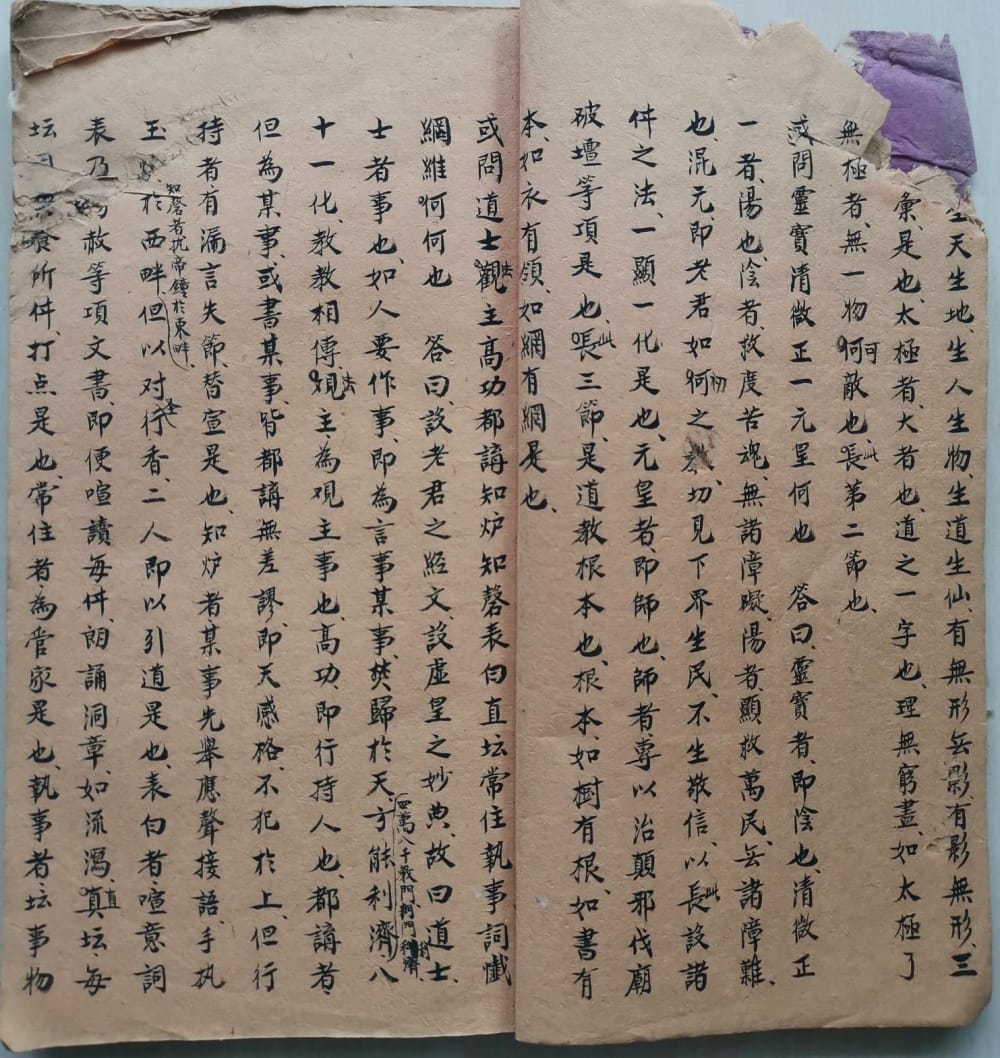 生天生地、生人生物、生道生仙、有無形無影、有影無形、三
彙、是也、太極者、大者也、道之一字也、理無窮盡、如太極了
無極者、無一物何可敵也、長此第二節也、
或問靈寶清微正一元皇何也 答曰、靈寶者、即陰也、清微正
一者、陽也、陰者、救度苦魂、無諸障礙、陽者、顯救萬民、無諸障難、
也、混元、即老君如何初之 切見下界生民、不生敬信、以長此設諸
件之法、一顯一化是也、元皇者、即師也、師者專以治顛邪伐廟
破壇等項是也、長此三節、是道教根本也、根本、如樹有根、如書有
本、如衣有領、如網有網是也、
或問道士觀法主高功都講知炉知磬表白直坛常住執事詞懺
綱維何何也 答曰、設老君之經文、設虛皇之妙典、故曰道士、
四萬八千戰門、利濟、
士者事也、如人要作事、即為言事某事、焚歸於天、方能利濟八
十一化、教教相傳、觀法主、為观主事也、高功、即行持人也、都講者、
但為某事、或書某事、皆都講無差謬、即天感格、不犯於上、但行
持者、有漏言失節、替宣是也、知炉者、某事先舉應聲接語、手执
知磬者执帝鐘於東畔、
玉 於西畔但以对圣行香、二人即以引道是也、表白者、喧意詞
表乃 赦等項文書、即便喧讀每件、朗誦洞章、如流瀉、真直坛、每
坛 食所件、打点是也、常住者為管家是也、執事者坛事物